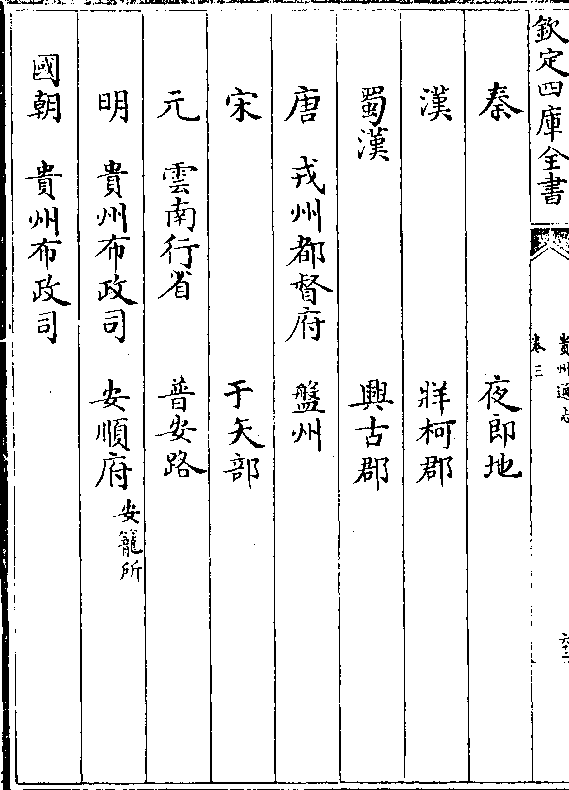 欽定四庫全書
貴州通志
卷三
秦 夜郎地
漢 牂柯郡
蜀漢 興古郡
唐 戎州都督府 盤州
宋 于矢部
元 雲南行省 普安路
明 貴州布政司 安順府 安籠所
國朝 貴州布政司